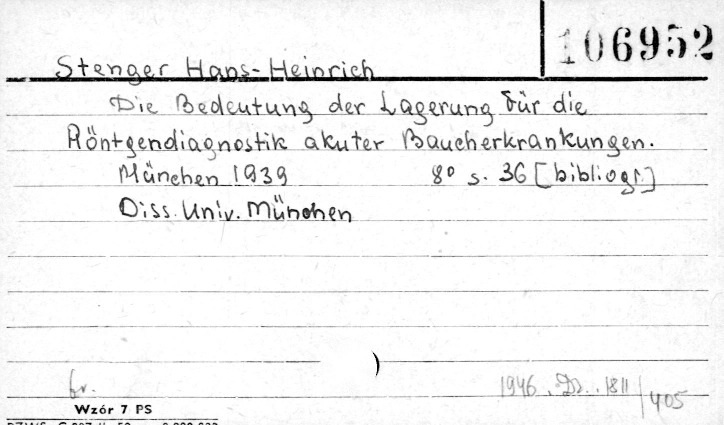 106952
Stenger Hans-Heinrich
Die Bedeutung der Lagerung für die
Röntgendiagnostik akuter Baucherkrankungen.
München 1939 8° s. 36 [bibliogr.]
Diss. Univ. München
)
br.
1946. Dz. 1811/405
Wzór 7 PS